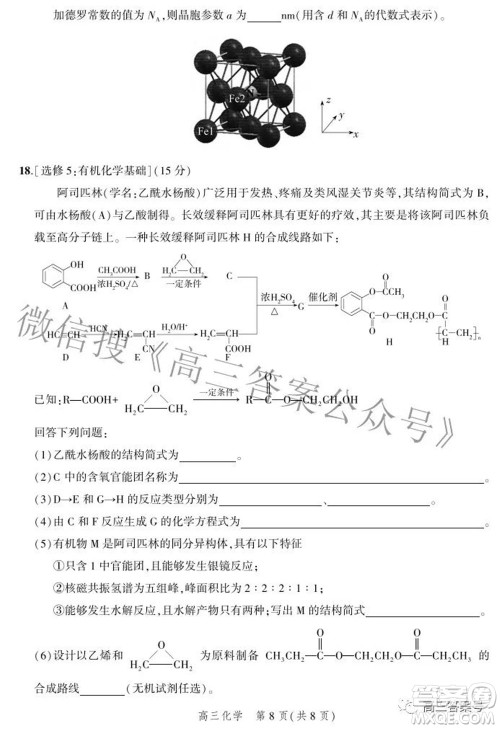 加德罗常数的值为 N_A,则晶胞参数 a 为______nm(用含 d 和 N_A的代数式表示)。
Fe1
Fe2
z
y
x
18.[选修5:有机化学基础](15分)
阿司匹林(学名:乙酰水杨酸)广泛用于发热、疼痛及类风湿关节炎等,其结构简式为 B,
可由水杨酸(A)与乙酸制得。长效缓释阿司匹林具有更好的疗效,其主要是将该阿司匹林
以至高分子链上。一种长效缓释阿司匹林 H 的合成线路如下:
OH
COOH
A
CH₃COOH
浓H₂SO₄/△
B
O
H₂C CH₂
一定条件
C
浓H₂SO₄
△
G
催化剂
O
OCCH₃
C-OCH₂CH₂O-C
O
O
[C-CH₂]n
CH₃
HC≡CH
D
HCN
H₂C
CN
E
H₂O/H⁺
H₂C
COOH
F
已知:R—COOH+
O
H₂C CH₂
一定条件
O
R—C—O—CH₂CH₂OH
回答下列问题:
(1)乙酰水杨酸的结构简式为________。
(2)C 中的含氧官能团名称为________
(3)D→E 和 G→H 的反应类型分别为________、________
(4)由 C 和 F 反应生成 G 的化学方程式为________
(5)有机物 M 是阿司匹林的同分异构体,具有以下特征
①只含1中官能团,且能够发生银镜反应;
②核磁共振氢谱为五组峰,峰面积比为2∶2∶2∶1∶1;
③能够发生水解反应,且水解产物只有两种;写出 M 的结构简式________
(6)设计以乙烯和
O
H₂C CH₂
为原料制备
O
O
CH₃CH₂—C—O—CH₂CH₂—O—C—CH₂CH₃
的
合成路线______(无机试剂任选)。
高三化学 第8页(共8页)
微信搜《高三答案公众号》
高三答案号
答案圈
MXQE.COM